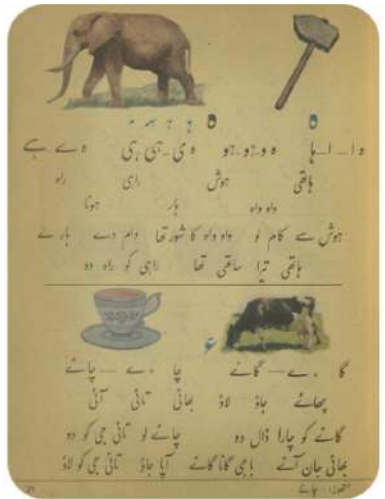 ہ ہ ہہ ہ
ہ ا۔ا۔ہا ہ و۔ہو۔ہو ہ ی۔ہی۔ہی ہ ے۔ہے
ہاتھی ہوش راہی راہ
واہ واہ ہار ہونا
ہوش سے کام لو واہ واہ کا شور تھا دام دے ہارے
ہاتھی ترا ساتھی تھا راہی کو راہ دو
ء
گا ۔ ے — گائے چا ۔ ے — چائے
چھائے جاؤ لاؤ بھائی تائی آئی
گائے کو چارا ڈال دو چائے لو تائی جی کو دو
بھائی جان آئے باجی گانا گائے آپا جاؤ تائی جی کو لاؤ
ہتھوڑا۔ چائے